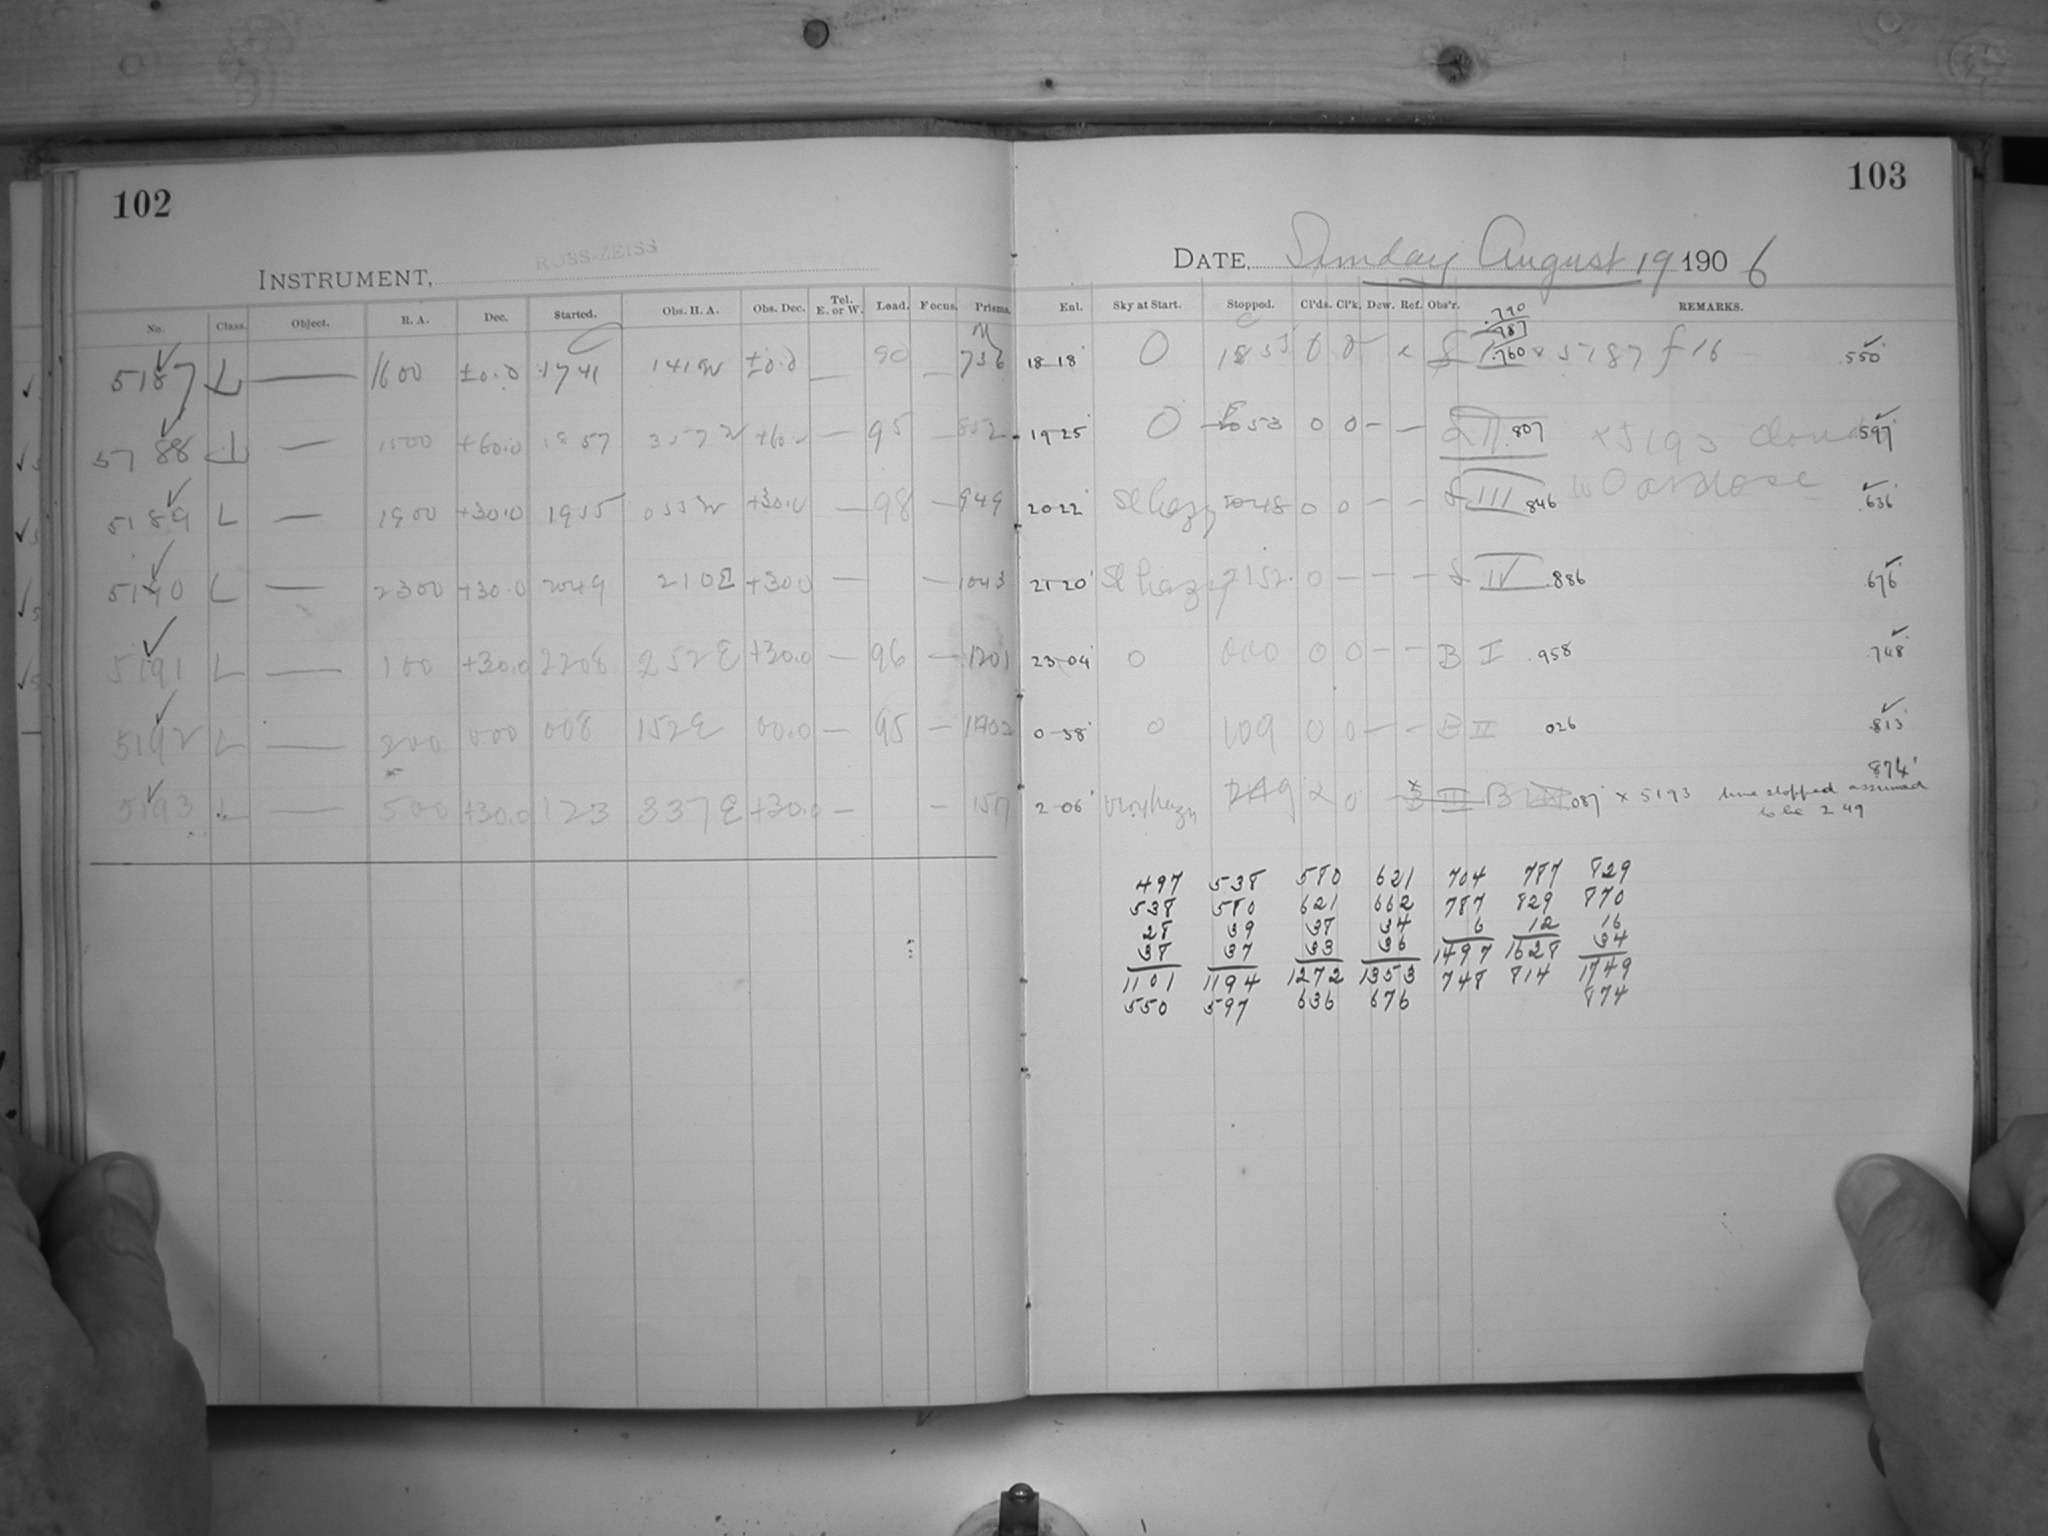 102
103
ROSS-ZEISS
INSTRUMENT,
DATE, Sunday August 19 1906
No. Class. Object. R. A. Dec. Started. Obs. H. A. Obs. Dec. Tel. E. or W. Load. Focus. Prisms.
Enl. Sky at Start. Stopped. Cl'ds. Cl'k. Dew. Ref. Obs'r. REMARKS.
5187 L — 1600 ±0.0 1741 141W ±0.0 — 90 — 736 18-18 0 1855 0 0 .790 .787 .760 x 5187 f 16 .550
5788 L — 1500 +60.0 1857 357W +60.0 — 95 — 852 19-25 0 53 0 0 — — II .807 x5193 .597
5189 L — 1900 +30.0 1955 055W +30.0 — 98 — 949 20-22 Sl hazy 2048 0 0 — — III 846 .636
5190 L — 2300 +30.0 2049 210E +30.0 — — 1043 21-20 Sl hazy 2152 0 — — — IV .886 .676
5191 L — 100 +30.0 2208 252E +30.0 — 96 — 1201 23-04 0 000 0 0 — — B I .958 .748
5192 L — 200 000 008 152E 00.0 — 95 — 0-38 0 109 0 0 — — B II 026 .813
5193 L — 500 +30.0 123 337E +30.0 — — 2-06 249 0 B .087 x 5193 time stopped assumed .874
to be 2 49
497 538 580 621 704 787 829
538 580 621 662 787 829 870
28 39 38 34 6 12 16
38 37 33 36 1497 1628 34
1101 1194 1272 1353 748 814 1749
550 597 636 676 874